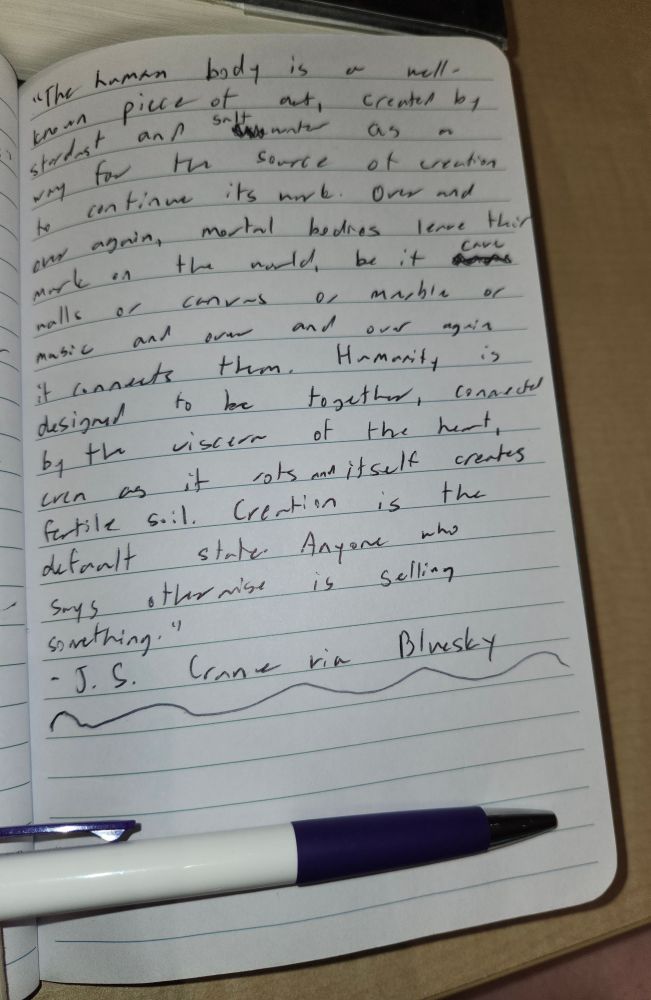 "The human body is a well-
known piece of art, created by
stardust and salt water as a
way for the source of creation
to continue its work. Over and
over again, mortal bodies leave their
mark on the world, be it cave
walls or canvas or marble or
music and over and over again
it connects them. Humanity is
designed to be together, connected
by the viscera of the heart,
even as it rots and itself creates
fertile soil. Creation is the
default state. Anyone who
says otherwise is selling
something."
- J. S. Crane via Bluesky